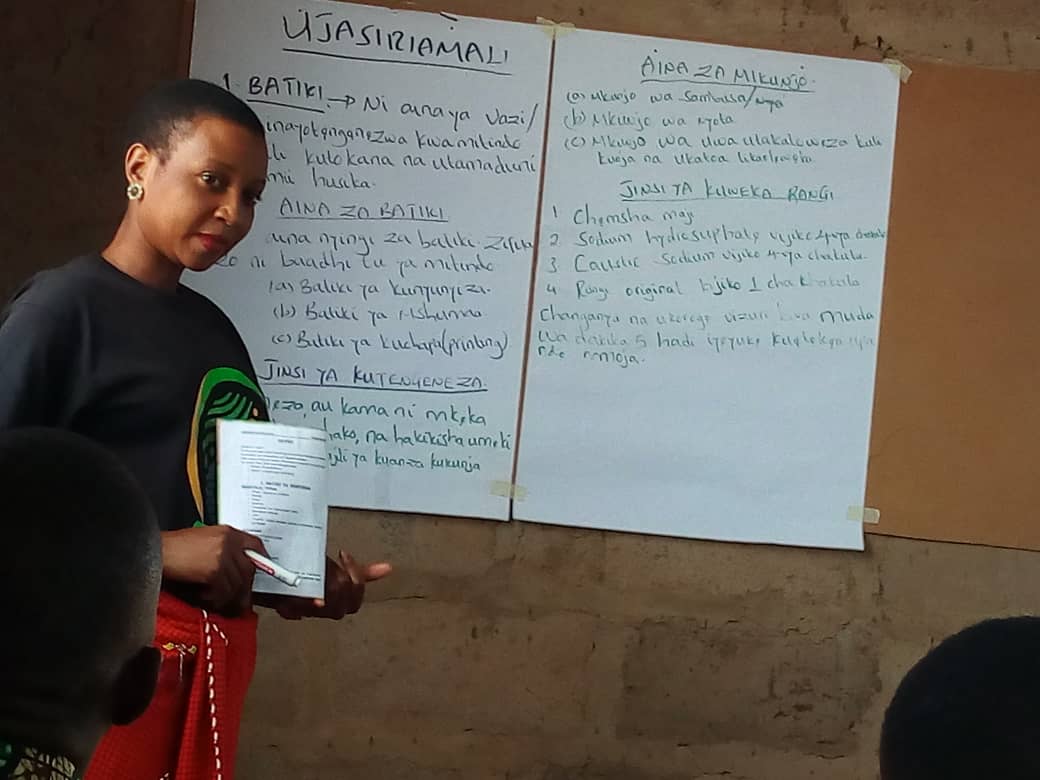 UJASIRIAMALI
1. BATIKI → Ni aina ya vazi/
inayotengenezwa kwa mitindo
kutokana na utamaduni
husika.
AINA ZA BATIKI
aina nyingi za batiki
ni baadhi tu ya mitindo
(a) Batiki ya kunyunyiza.
(b) Batiki ya Mshumaa
(c) Batiki ya kuchapa (printing)
JINSI YA KUTENGENEZA.
au kama ni mkeka
hako, na hakikisha umeki
ya kuanza kukunja
AINA ZA MIKUNJO.
(a) Mkunjo wa Sambusa/
(b) Mkunjo wa nyota
(c) Mkunjo wa uwa ulakaloweza kuku
kunja na ukatoa
JINSI YA KUWEKA RANGI
1 Chemsha maji
2 Sodium vijiko 4 vya chakula
3 Caustic Sodium vijiko 4 vya chakula
4 Rangi original kijiko 1 cha chakula
Changanya na ukoroge vizuri kwa muda
wa dakika 5 hadi iyeyuke kutokea
moja.